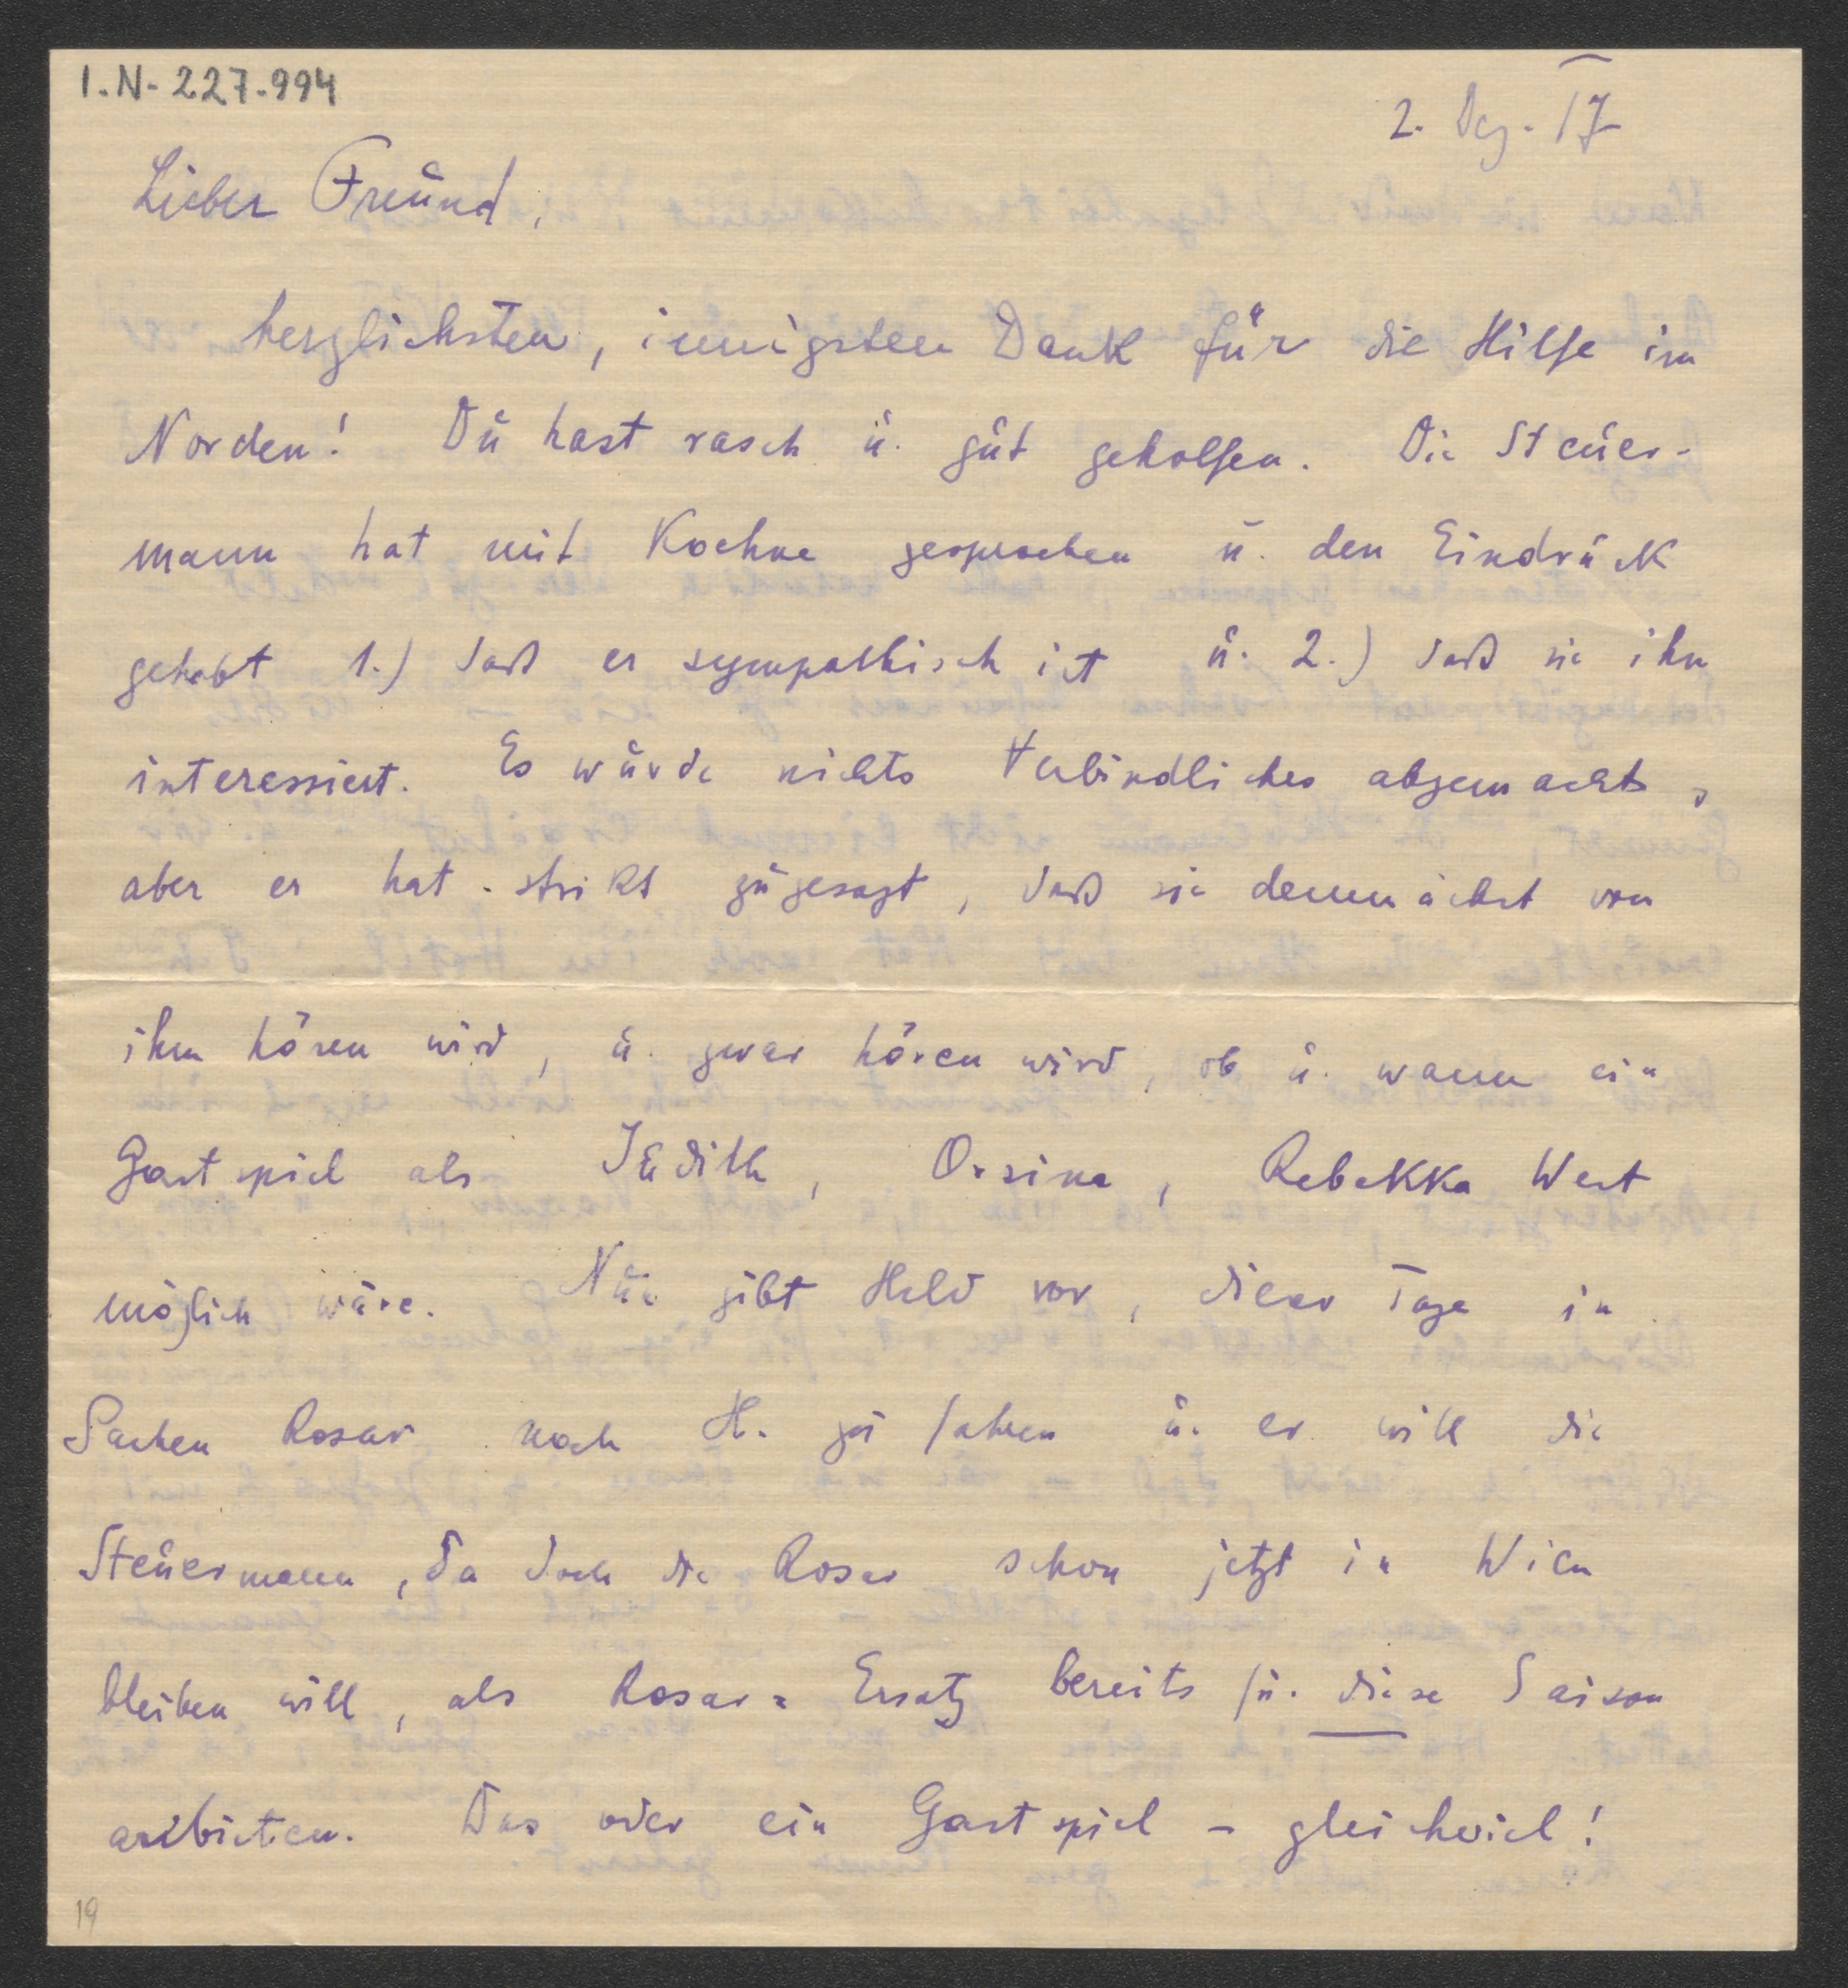 I.N. 227.994
2. Dez. 17
Lieber Freund,
herzlichsten, innigsten Dank für die Hilfe im
Norden! Du hast rasch u. gut geholfen. Die Steuer-
mann hat mit Koehne gesprochen u. den Eindruck
gehabt 1.) daß er sympathisch ist u. 2.) daß sie ihn
interessiert. Es wurde nichts Verbindliches abgemacht,
aber er hat strikt zugesagt, daß sie demnächst von
ihm hören wird, u. zwar hören wird, ob u. wann ein
Gastspiel als Judith, Orsina, Rebekka West
möglich wäre. Nun gibt Held vor, dieser Tage in
Sachen Rosar nach H. zu fahren u. er will die
Steuermann, da doch die Rosar schon jetzt in Wien
bleiben will, als Rosar-Ersatz bereits für diese Saison
anbieten. Das oder ein Gastspiel – gleichviel!
19